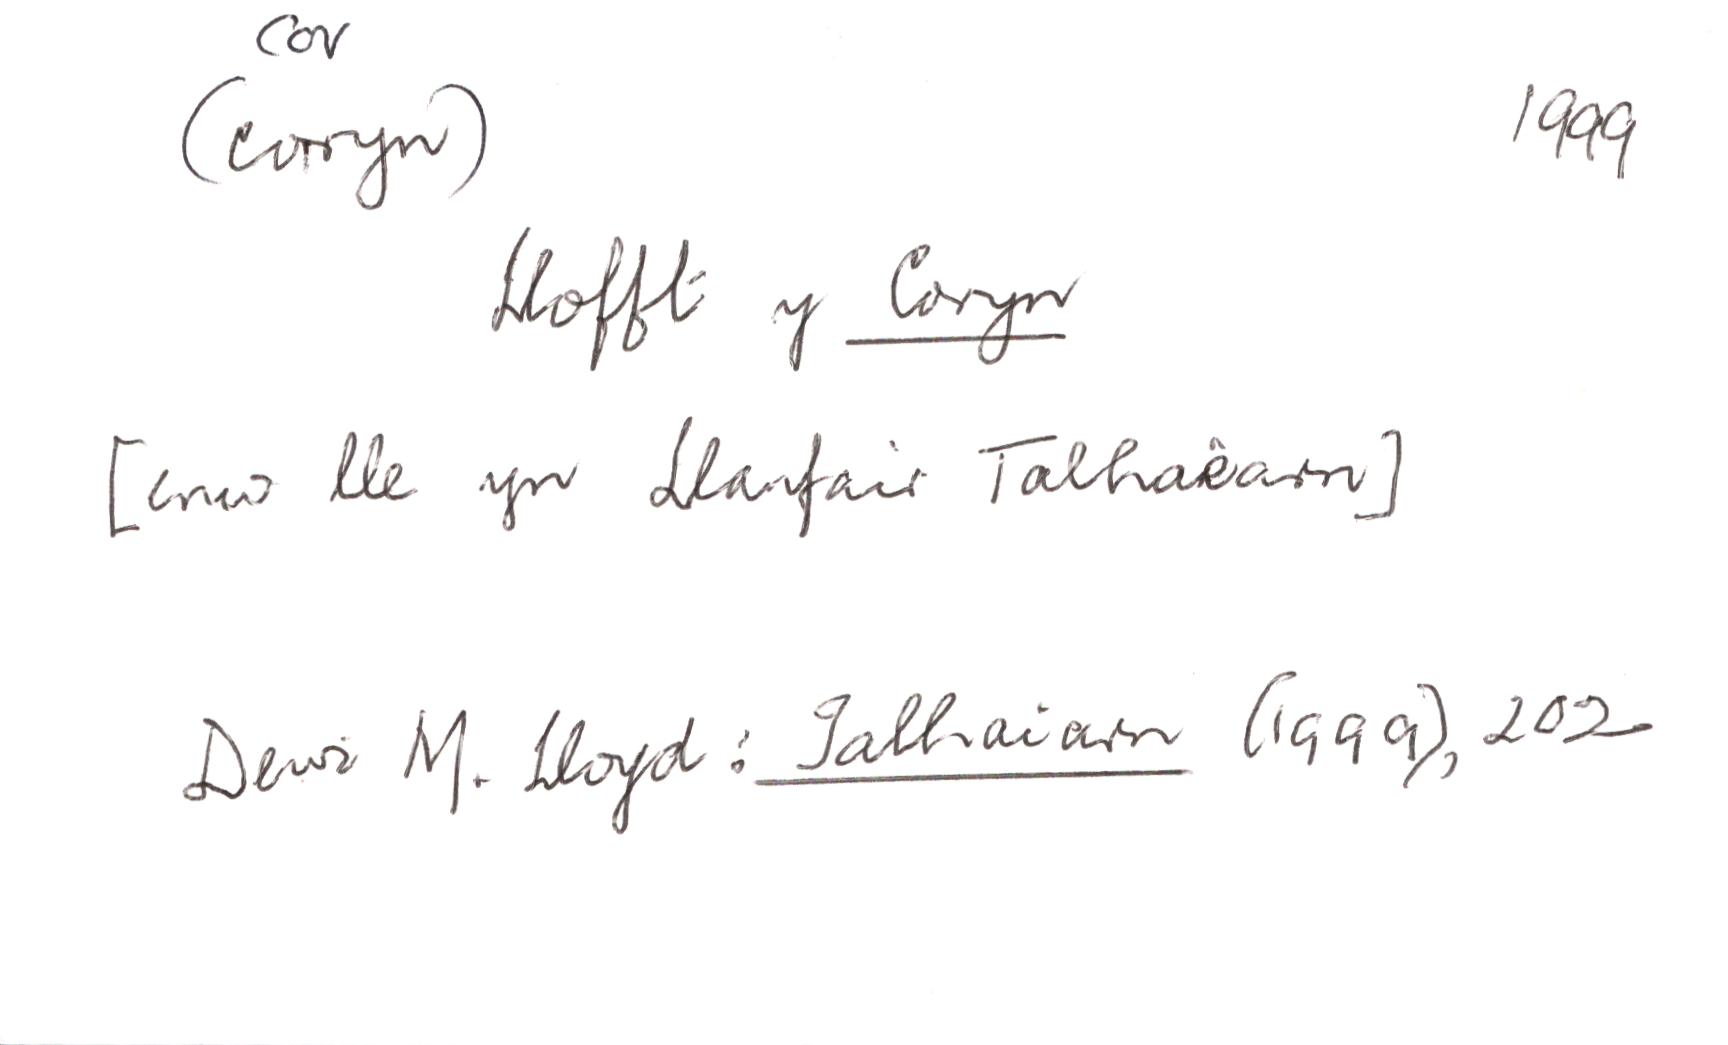 cor
(corryn) 1999
Llofft y Coryn
[enw lle yn Llanfair Talhaearn]
Dewi M. Lloyd: Talhaiarn (1999), 202